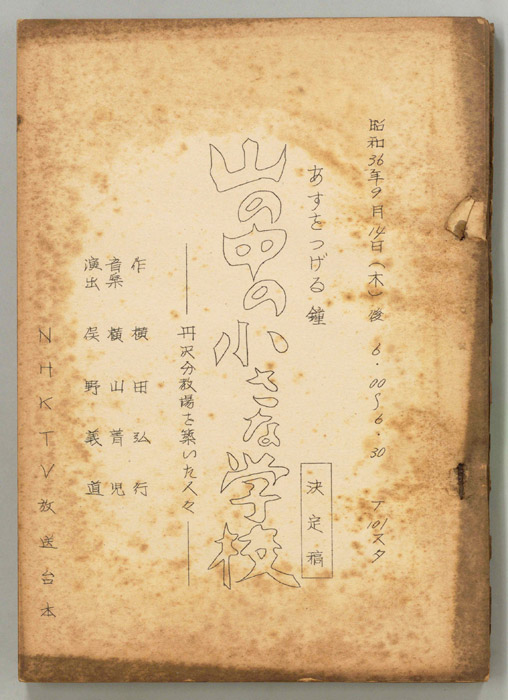 昭和36年9月14日(木)後 6.00〜6.30 T101スタ
あすをつげる鐘
決定稿
山の中の小さな学校
――丹沢分教場を築いた人々――
作 横田弘行
音楽 横山菁児
演出 俣野義道
NHKTV放送台本